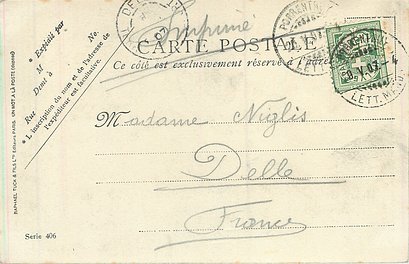 * Expédié par
M
Demt à
Rue No.
* L'inscription du nom et de l'adresse de
l'expéditeur est facultative.
RAPHAEL TUCK & FILS
Imprimé
CARTE POSTALE
Ce côté est exclusivement réservé à l'adresse
PORRENTRUY
LETT.
PORRENTRUY
V.07.-4
LETT.
Madame Niglis
Delle
France
Serie 406